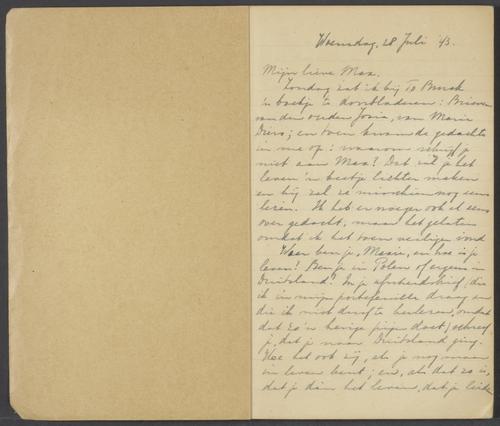 Woensdag, 28 Juli '43.
Mijn lieve Max.
Zondag zat ik bij To Brusk
'n boekje te doorbladeren: Brieven
van den ouden Josia, van Marie
Diers; en toen kwam de gedachte
in me op: waarom schrijf je
niet aan Max? Dat zal je het
leven 'n beetje lichter maken
en hij zal ze misschien nog eens
lezen. Ik heb er vroeger ook al eens
over gedacht, maar het gelaten
omdat ik het toen veiliger vond
Waar ben je, Maxie, en hoe is je
leven? Ben je in Polen of ergens in
Duitsland? In je afscheidsbrief, die
ik in mijn portefeuille draag en
die ik niet durf te herlezen, omdat
dat zo'n hevige pijn doet, schreef
je, dat je naar Duitsland ging.
Hoe het ook zij, als je nog maar
in leven bent; en, als dat zo is,
dat je dan het leven, dat je